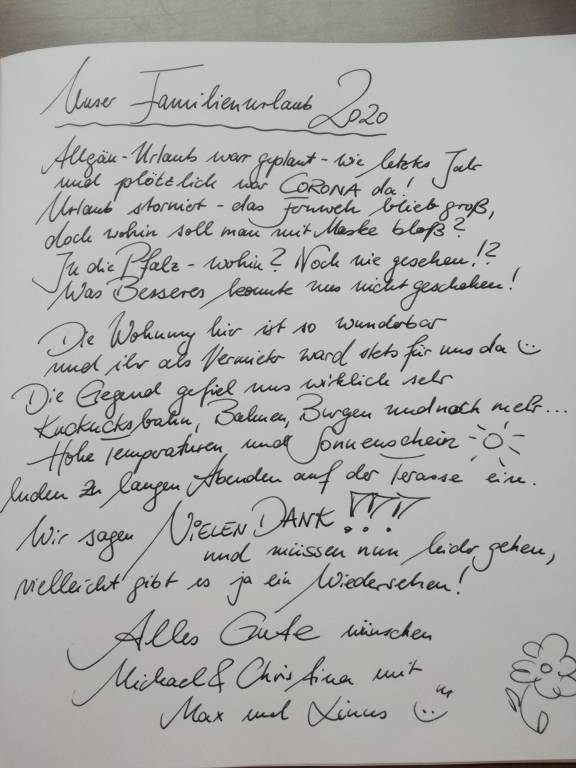 Unser Familienurlaub 2020
Allgäu-Urlaub war geplant - wie letztes Jahr
und plötzlich war CORONA da!
Urlaub storniert - das Fernweh blieb groß,
doch wohin soll man mit Maske bloß?
In die Pfalz - wohin? Noch nie gesehen!?
Was Besseres konnte uns nicht geschehen!
Die Wohnung hier ist so wunderbar
und ihr als Vermieter ward stets für uns da
Die Gegend gefiel uns wirklich sehr
Kuckucksbahn, Burgen und noch mehr...
Hohe Temperaturen und Sonnenschein
luden zu langen Abenden auf der Terasse ein.
Wir sagen VIELEN DANK!!!!
und müssen nun leider gehen,
vielleicht gibt es ja ein Wiedersehen!
Alles Gute wünschen
Michael & Christina mit
Max und Linus